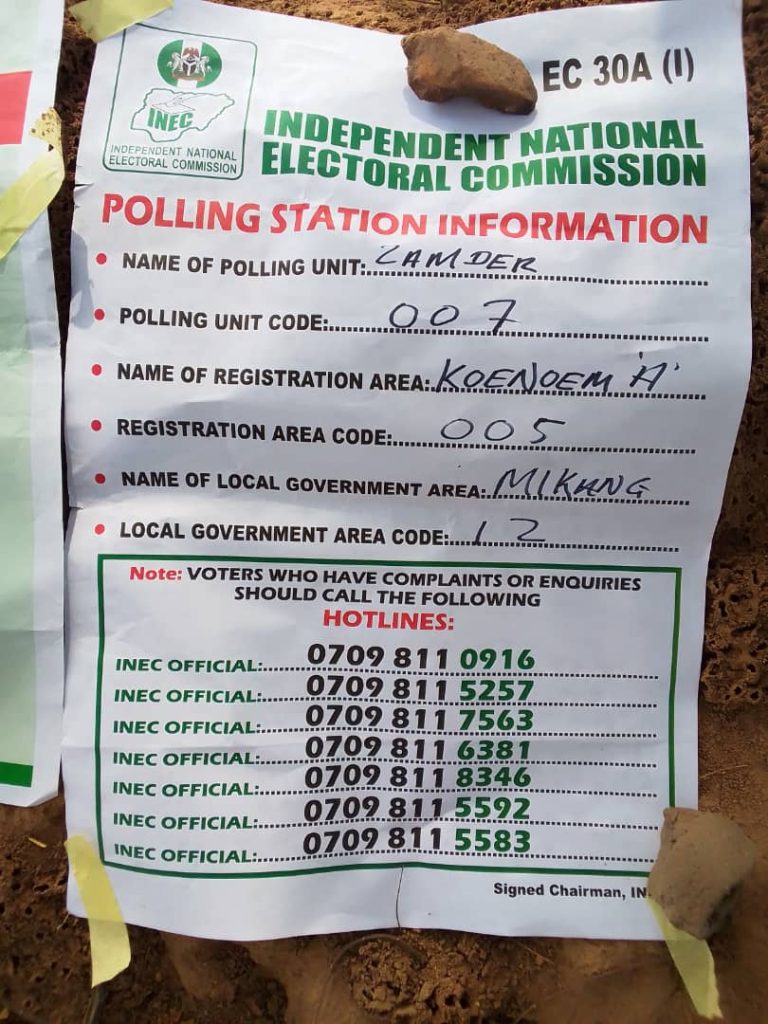 EC 30A (I)
INEC
INDEPENDENT NATIONAL
ELECTORAL COMMISSION
INDEPENDENT NATIONAL
ELECTORAL COMMISSION
POLLING STATION INFORMATION
• NAME OF POLLING UNIT: ZAMDER
• POLLING UNIT CODE: 007
• NAME OF REGISTRATION AREA: KOENOEM 'A'
• REGISTRATION AREA CODE: 005
• NAME OF LOCAL GOVERNMENT AREA: MIKANG
• LOCAL GOVERNMENT AREA CODE: 12
Note: VOTERS WHO HAVE COMPLAINTS OR ENQUIRIES
SHOULD CALL THE FOLLOWING
HOTLINES:
INEC OFFICIAL: 0709 811 0916
INEC OFFICIAL: 0709 811 5257
INEC OFFICIAL: 0709 811 7563
INEC OFFICIAL: 0709 811 6381
INEC OFFICIAL: 0709 811 8346
INEC OFFICIAL: 0709 811 5592
INEC OFFICIAL: 0709 811 5583
Signed Chairman,